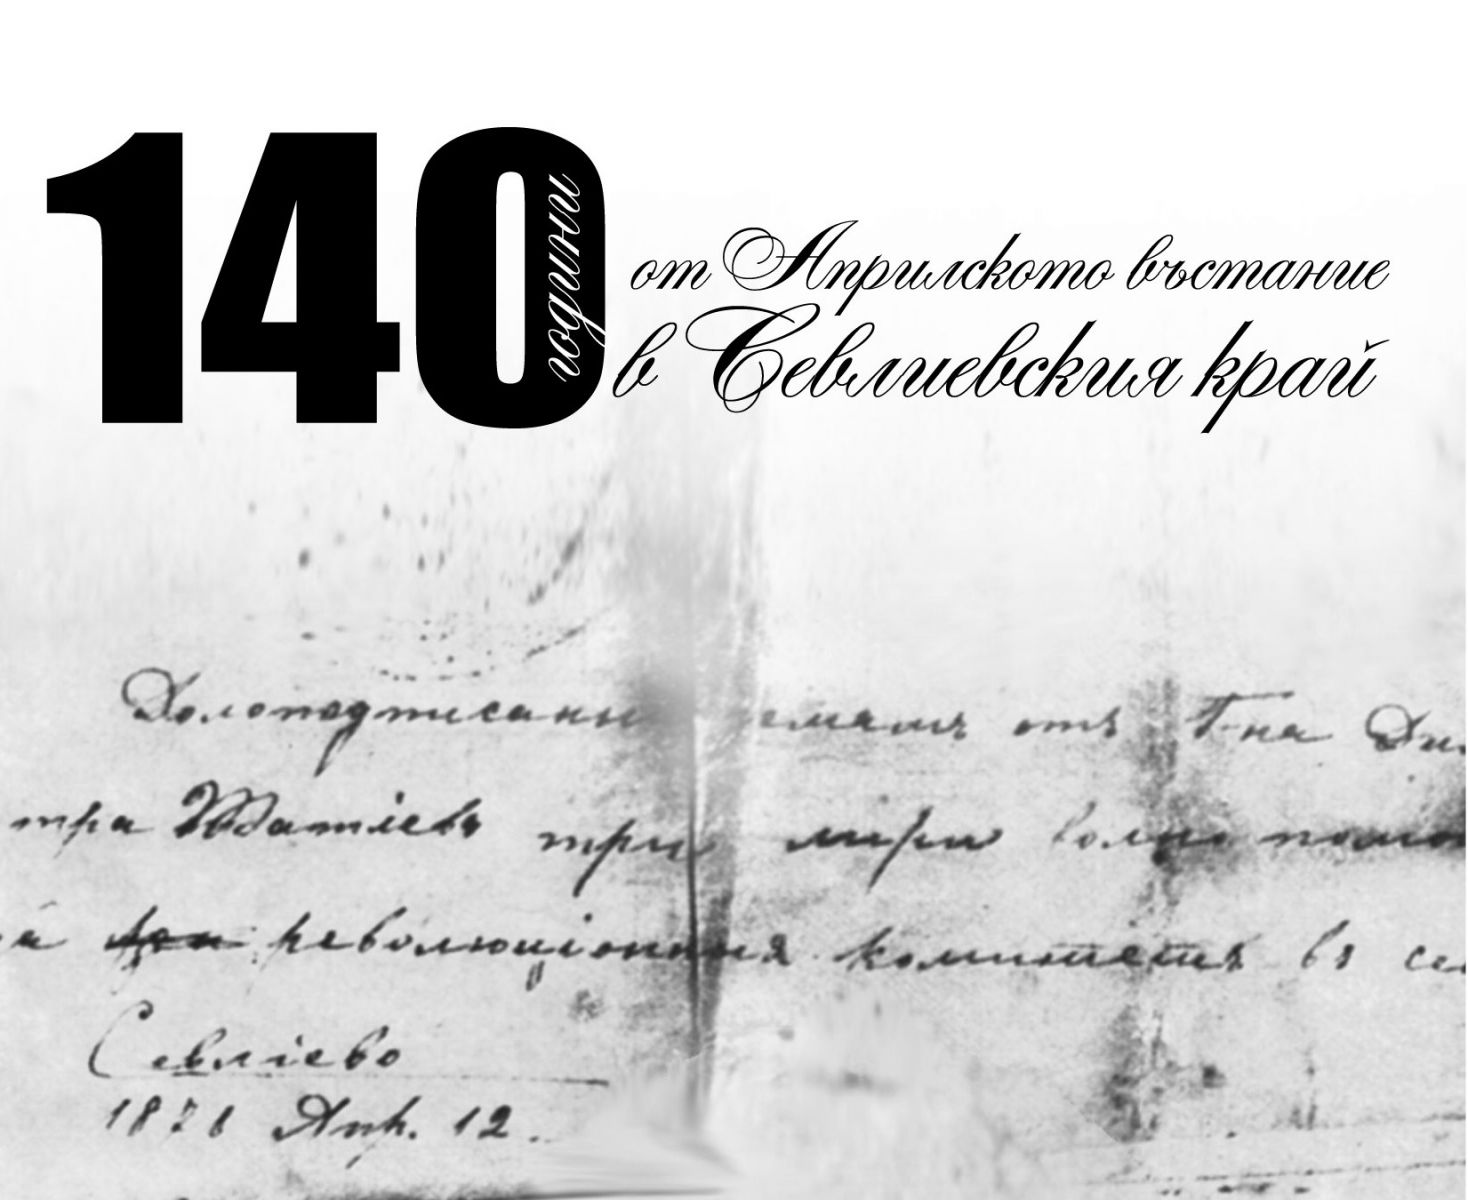 140 години
от Априлското въстание
в Севлиевския край
Долоподписаны емамъ отъ Г-на Ди
тра Матіевъ три лири
революціонния комитетъ въ се
Севліево
1876 Апр. 12.